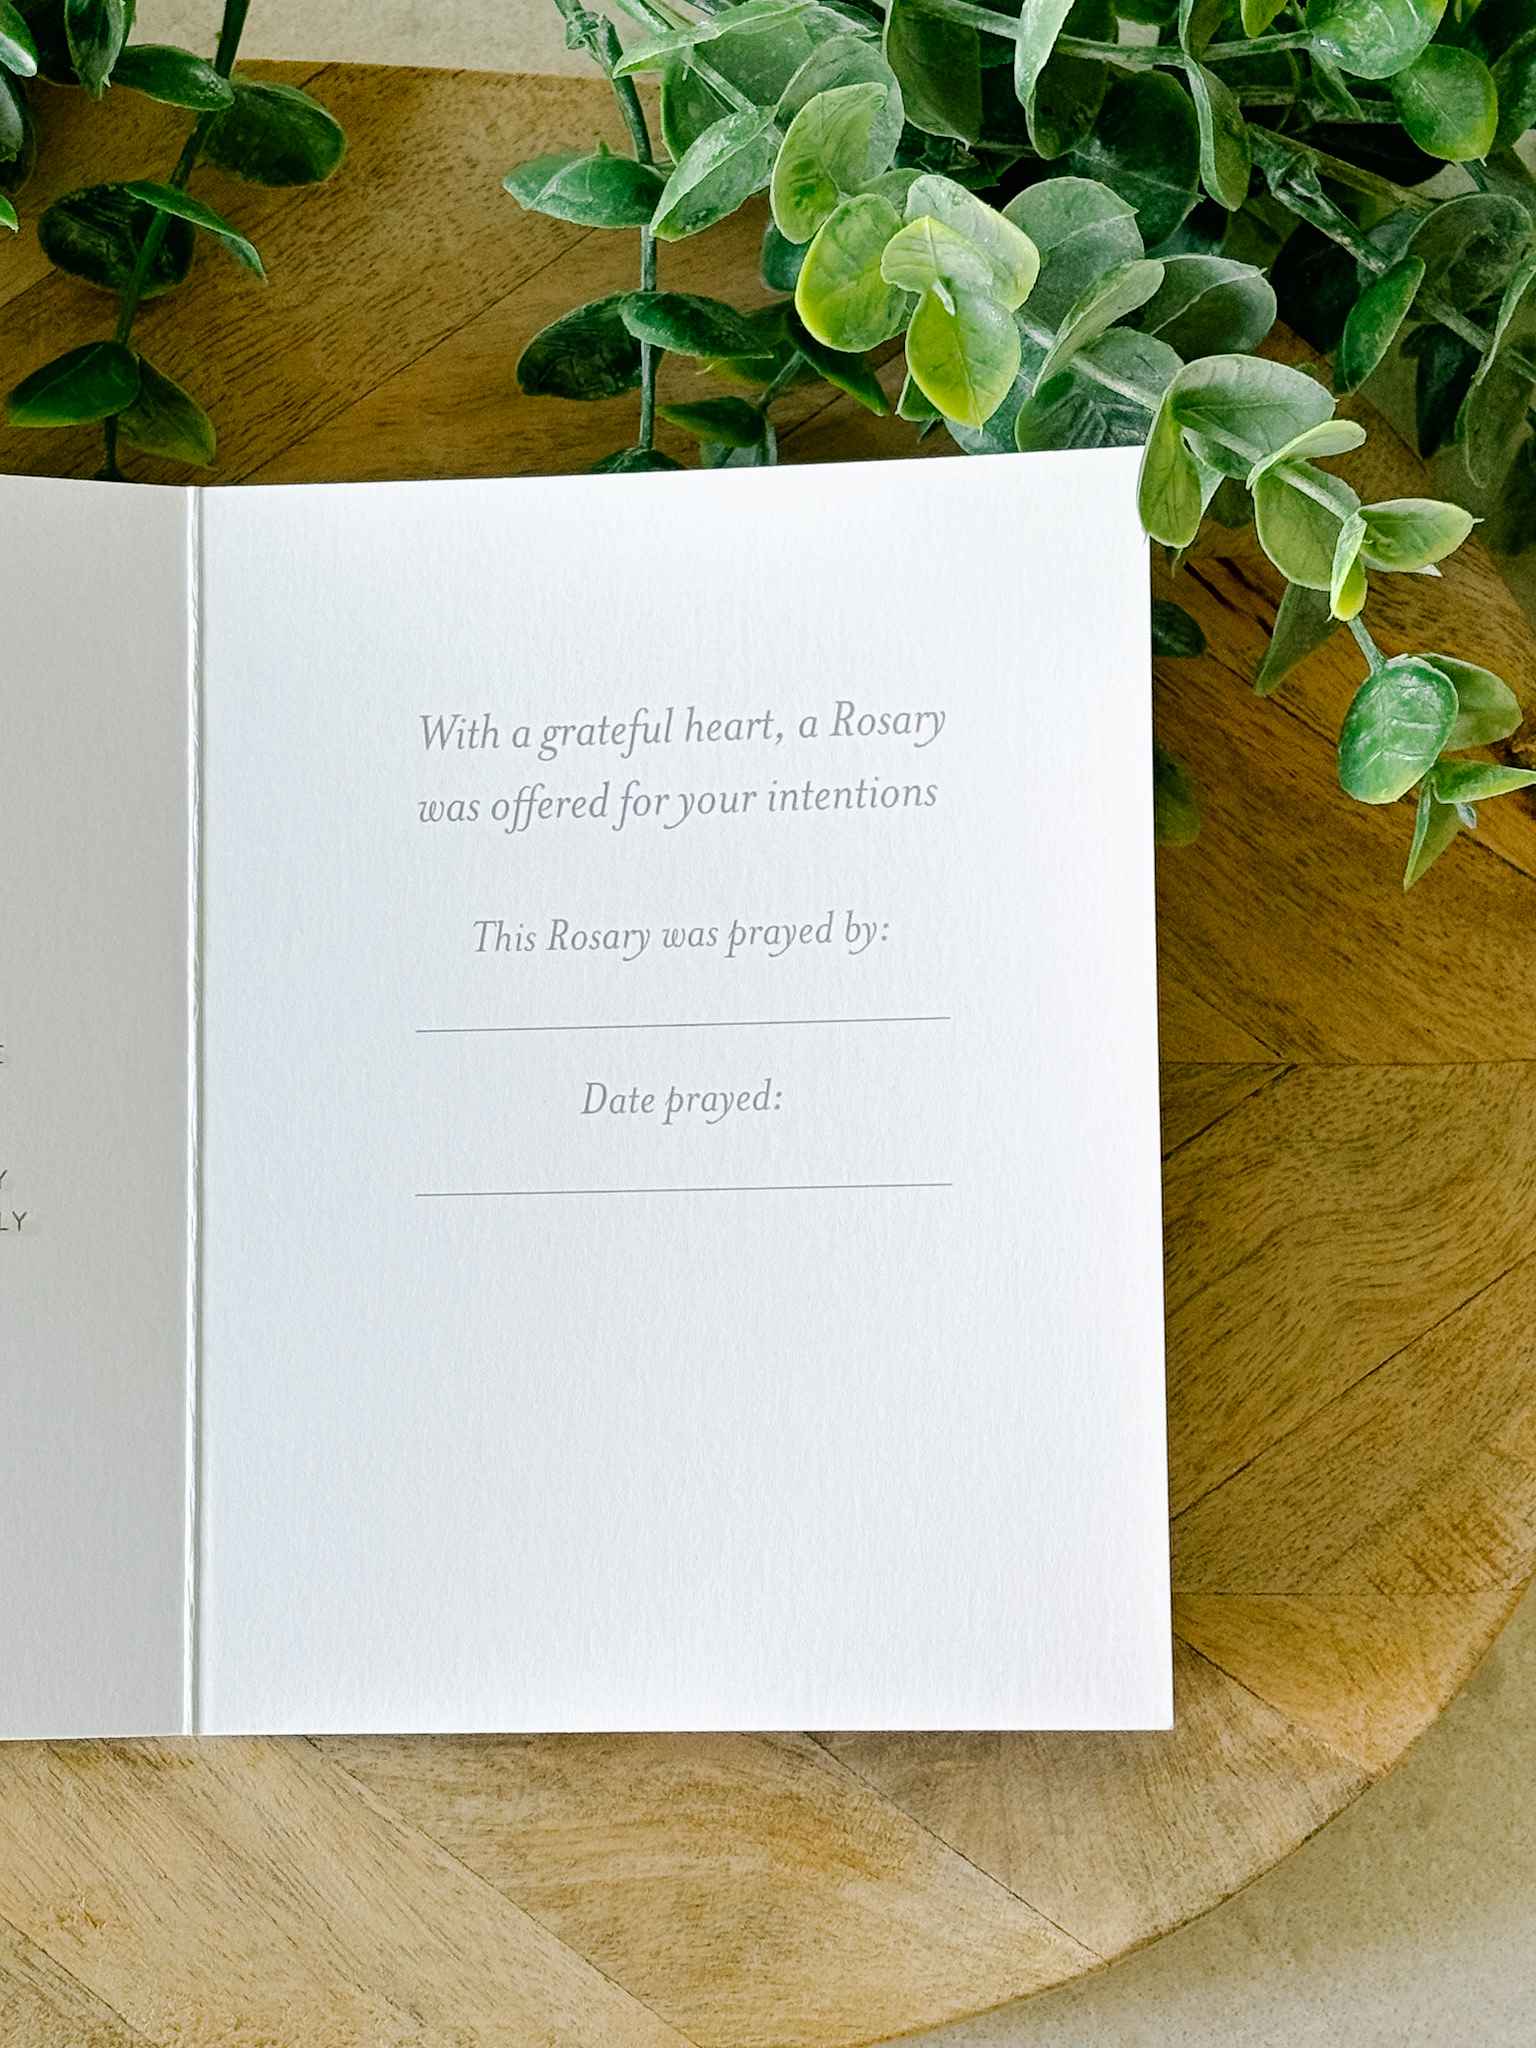 With a grateful heart, a Rosary
was offered for your intentions
This Rosary was prayed by:
Date prayed: